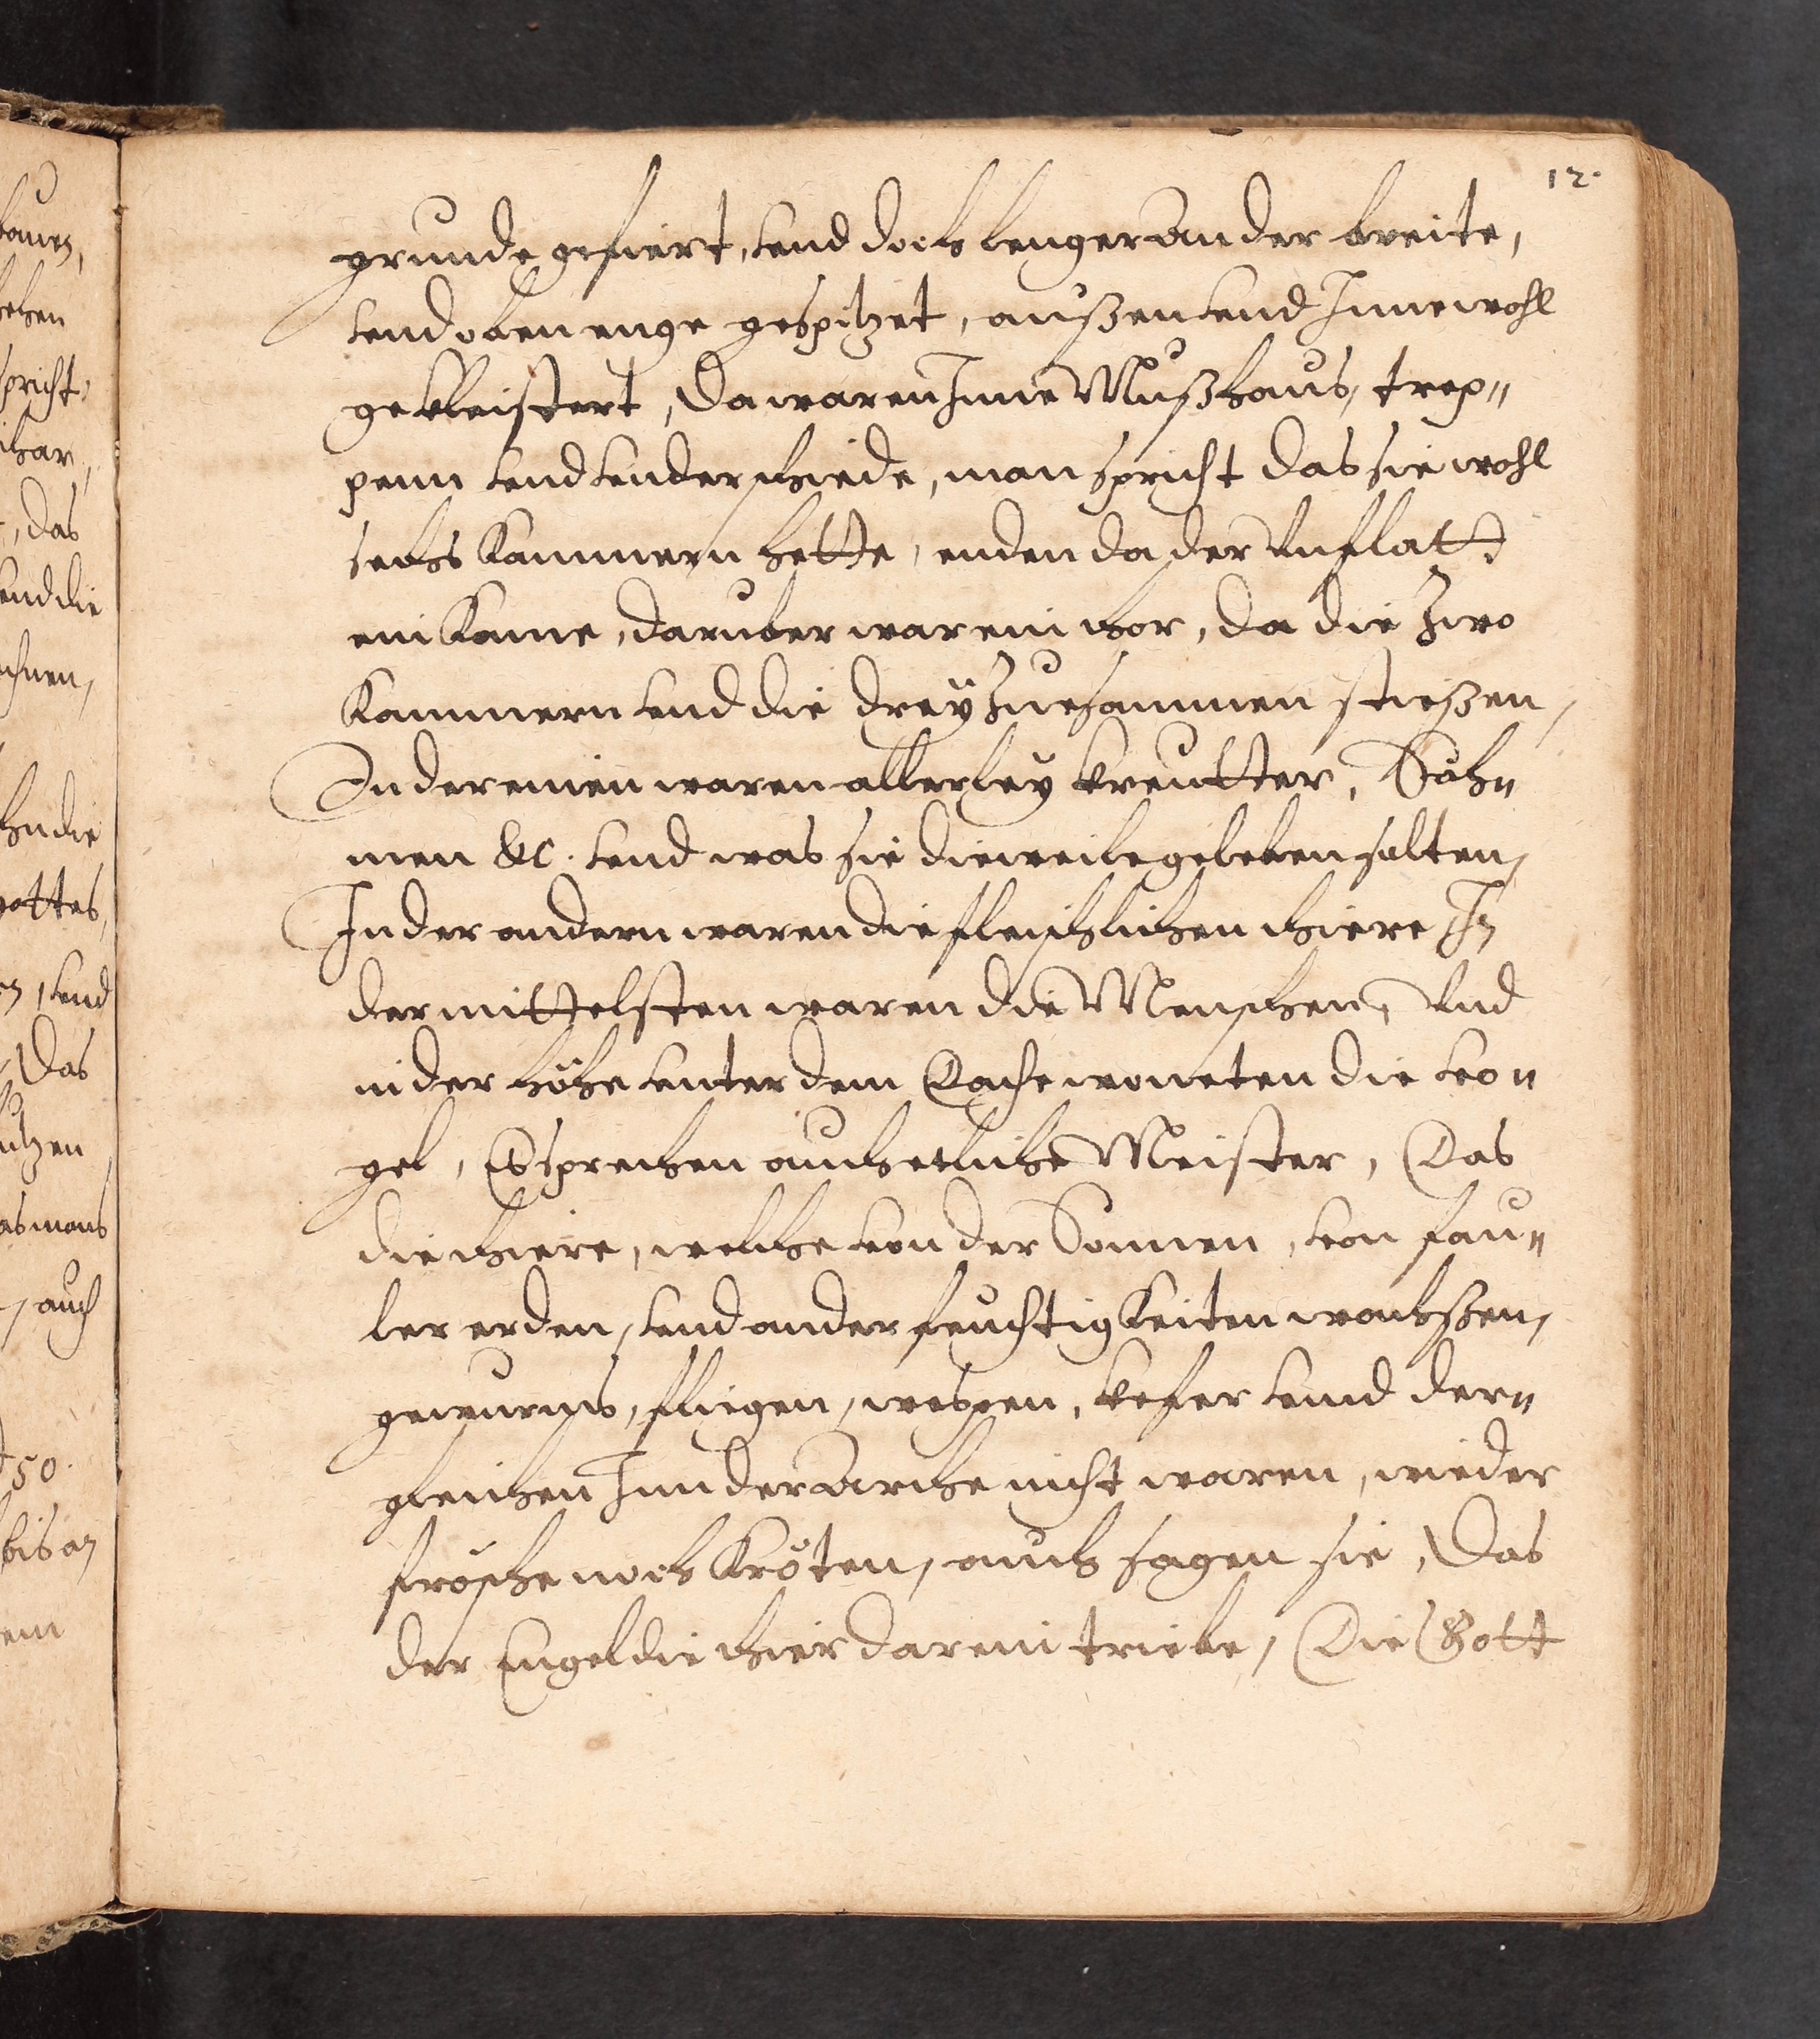 12.
grunde gefiert, vnd doch lenger an der breite,
vnd oben enge gespitzet, außen vnd Inne wohl
gekleistert, Da waren Inne Mußhaus, trep=
penn vnd vnderschiede, man spricht das sie wohl
sechs Kammern hette, enden da der Vnflatt
ein Kame, daruber war ein thor, da die zwo
Kammern vnd die dreÿ zuesammen stießen,
In der einen waren allerleÿ kreutter, Sah=
men &c. vnd was sie dieweile geleben solten,
In der andern waren die fleischlichen thiere Jn
der mittelsten waren die Menschen, Vnd
in der höhe vnter dem Dache woneten die vo=
gel, Es sprechen auch etliche Meister, Das
die thiere, welche von der Sonnen, von fau=
ler erden, vnd ander feuchtigkeiten wachssen,
gewurms, fliegen, wespen, kefer vnnd der=
gleichen Inn der Arche nicht waren, wieder
frösche noch Kröten, auch sagen sie, Das
der Engel die thier darein triebe, Die Gott
bauen,
spricht,
das
vnd die
hn die
gottes,
vnd
Das
auch
50.
bis an